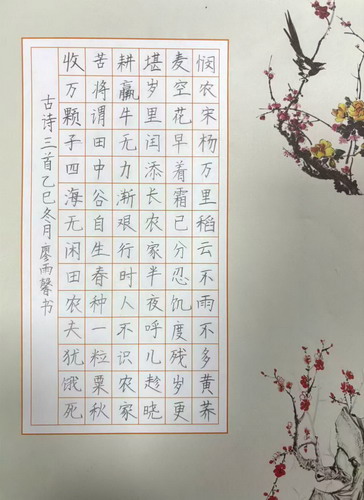 悯农宋杨万里稻云不雨不多黄荞
麦空花早着霜已分忍饥度残岁更
堪岁里闰添长农家半夜呼儿趁晓
耕赢牛无力渐艰行时人不识农家
苦将谓田中谷自生春种一粒粟秋
收万颗子四海无闲田农夫犹饿死
古诗三首乙巳冬月廖雨馨书